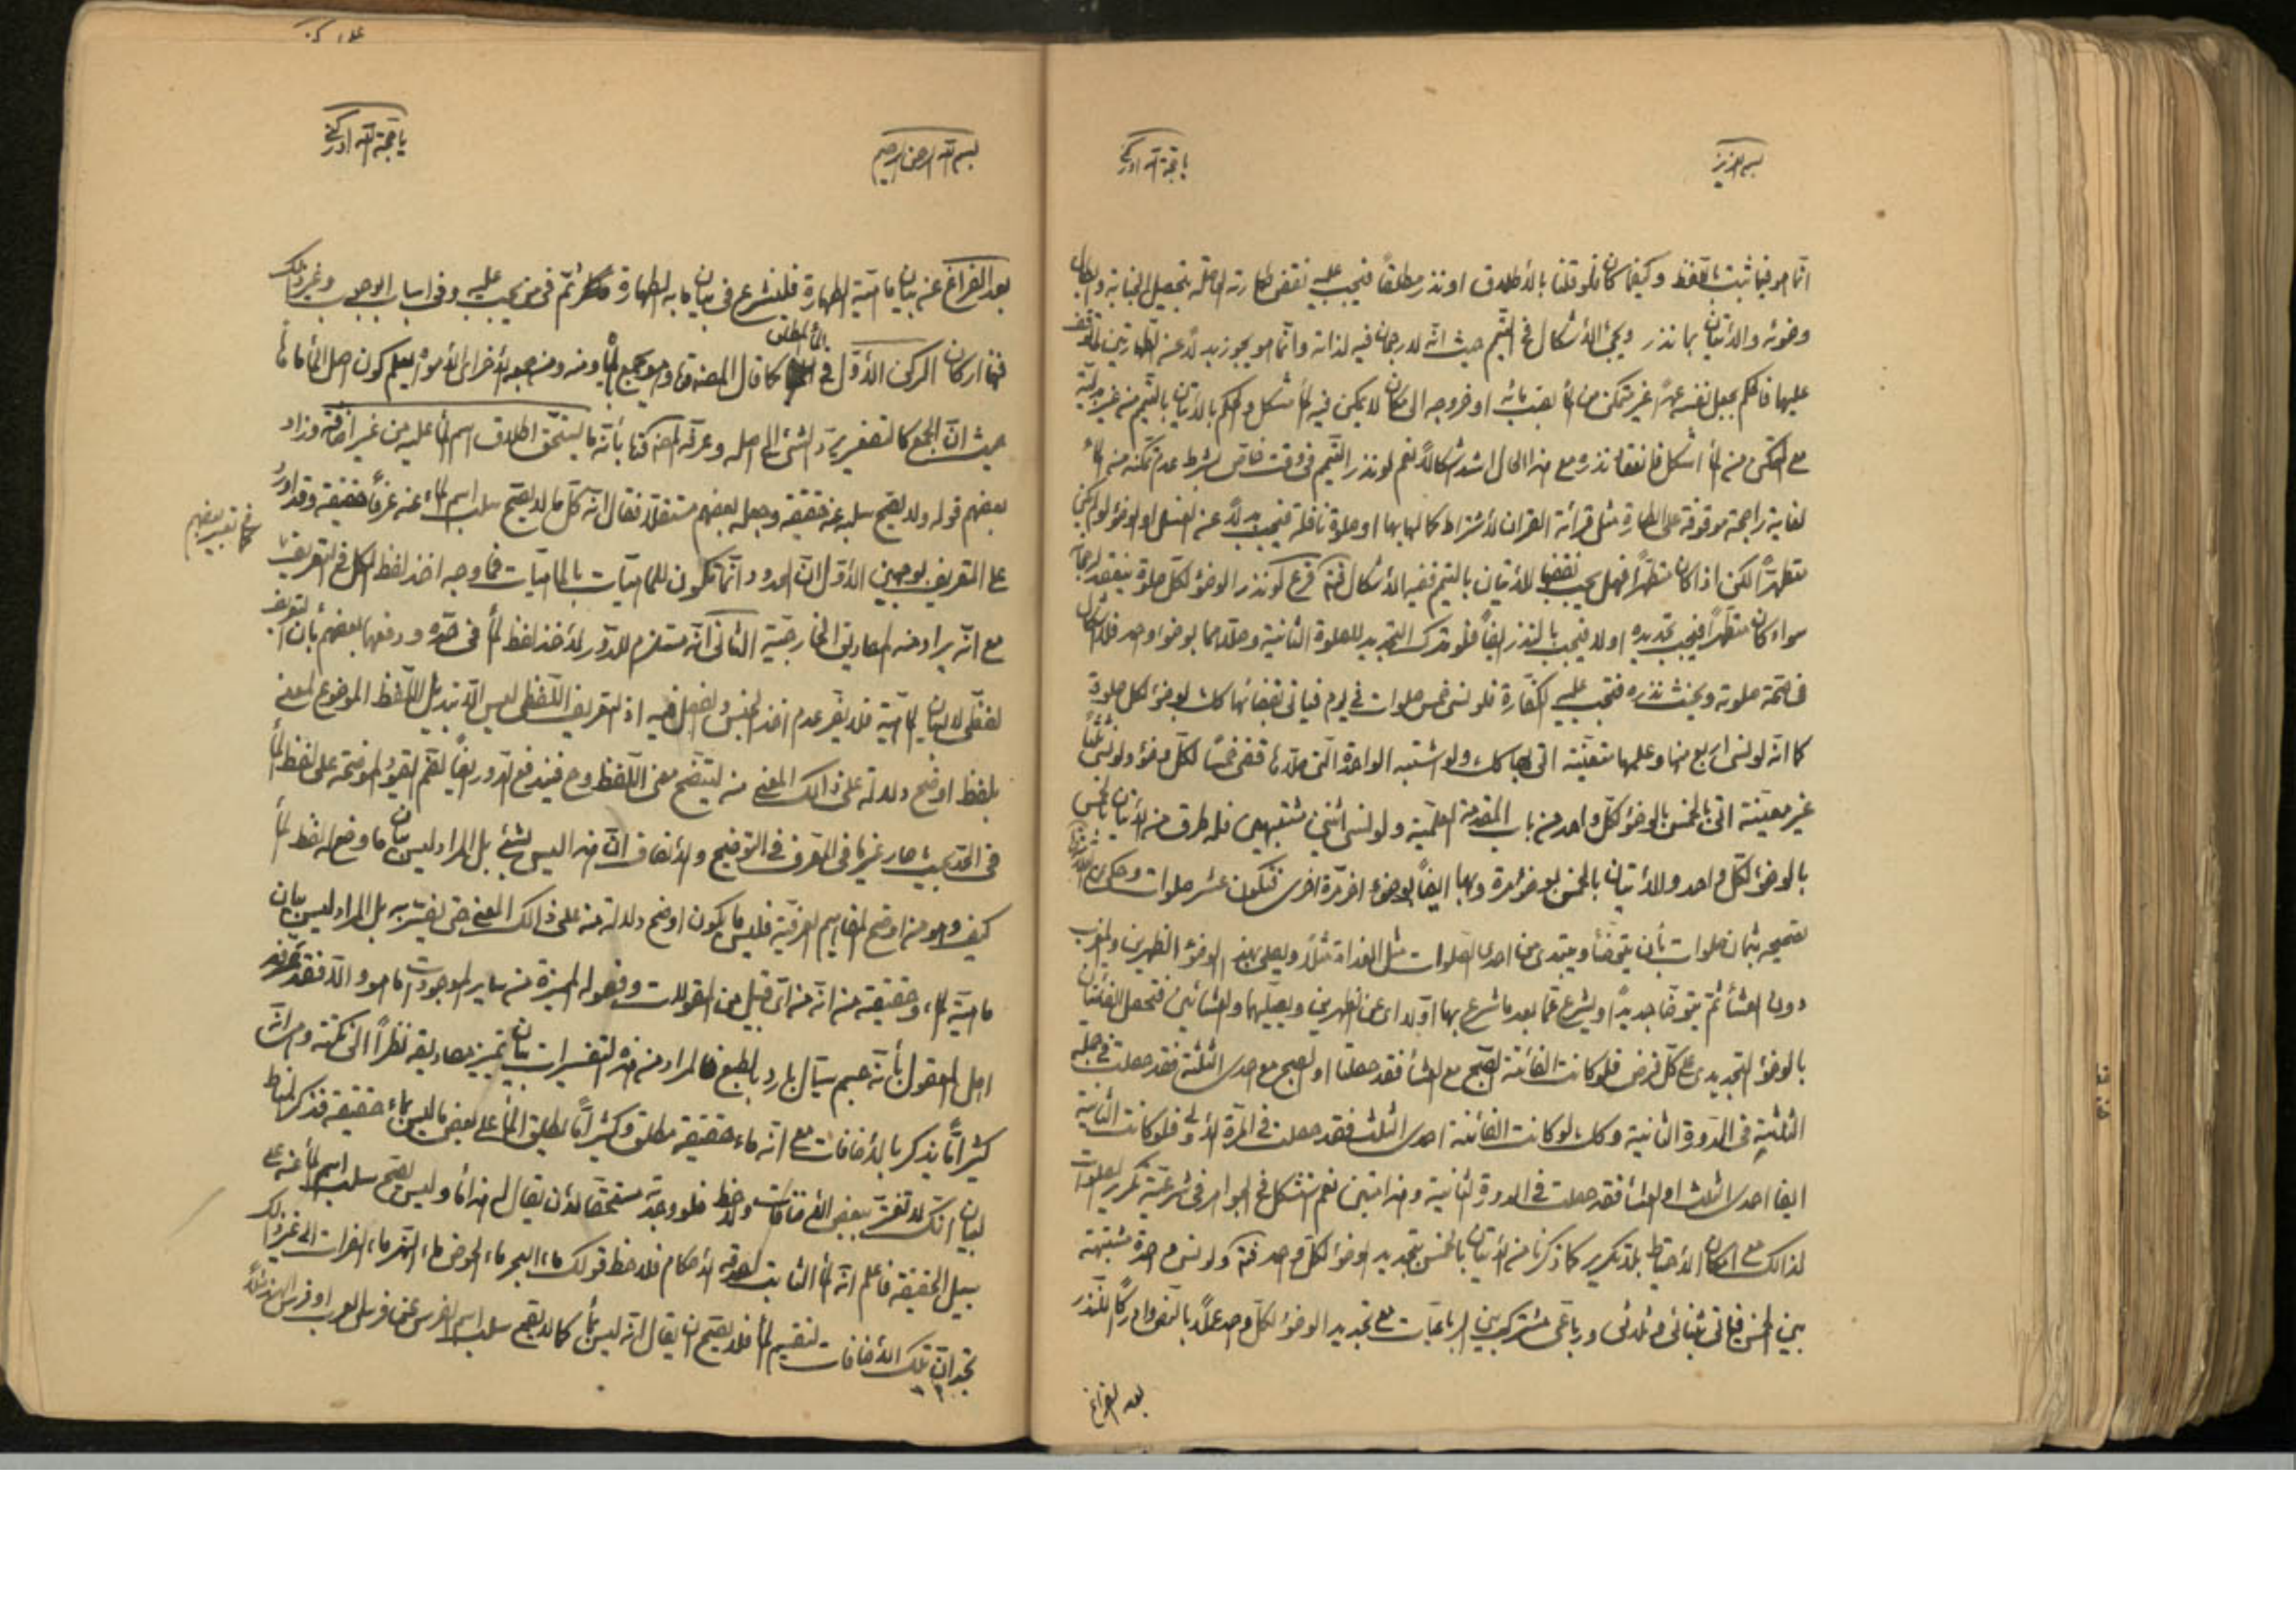 بسمه العزيز
يا حجة الله ادركني
انما هو فيما ثبت بالفظ وكيفما كان فلو قلنا بالأطلاق او نذر مطلقاً فيجب عليه نقض طهارته الحاصلة بتحصيل الجنابة وابطال
وضوئه والأتيان بما نذر ويجئ الأشكال في التيمم حيث انه لا رجحان فيه لذاته وانما هو يجوز بدلاً عن الطهارتين
عليها فالحكم بجعل نفسه غير متمكن من الماء بصب مائه او خروجه الى مكان لا يمكن فيه الماء مشكل والحكم بالأتيان بالتيمم من غير بدلية
مع التمكن من الماء اشكل فانعقاد نذره مع هذا الحال اشد اشكالاً نعم لو نذر التيمم في وقت خاص بشرط عدم تمكنه من الماء
لغاية راجحة موقوفة على الطهارة مثل قرائة القران لأشتراط كمالها بها او صلوة نافلة فيجب بدلاً عن الغسل او الوضوء لو لم يكن
متطهراً لكن اذا كان متطهراً فهل يجب نقضها للأتيان بالتيمم ففيه الأشكال فتأمل فرع لو نذر الوضوء لكل صلوة ينعقد
سواء كان متطهراً فيجب تجديده او لا فيجب بالنذر ايضاً فلو ترك التجديد للصلوة الثانية وصلاهما بوضوء واحد فلا اشكال
في صحة صلوته ويحنث نذره فتجب عليه الكفارة فلو نسى خمس صلوات في يوم فياتى بقضائها كل بوضوء لكل صلوة
كما انه لو نسى اربع منها وعلمها متعينة اتى بها كك ولو اشتبه الواحدة التى صلاها قضى خمساً لكل وضوء ولو نسى ثلثاً
غير معينة اتى بالخمس بالوضوء لكل واحد من باب المقدمة العلمية ولو نسى اثنين مشتبهين فله طرق من الأتيان بالخمس
بالوضوء لكل واحد والأتيان بالخمس بوضوء مرة وبها ايضاً بوضوء اخر مرة اخرى فتكون عشر صلوات
تصحيحه بثمان صلوات بأن يتوضأ ويبتدى من احدى الصلوات مثل الغداة مثلاً ويصلى بهذا الوضوء الظهرين والمغرب
دون العشاء ثم يتوضأ جديداً ويشرع عما بعد ما شرع بها اولا اى عن الظهرين ويصليهما والعشائين فتحصل الفائتتان
بالوضوء التجديدى على كل فرض فلو كانت الفائتة الصبح مع العشاء فقد حصلتا او الصبح مع احدى الثلثة فقد حصلت في جملة
الثلثة فى الدورة الثانية وكك لو كانت الفائتة احدى الثلث فقد حصلت في المرة الأولى فلو كانت الثانية
ايضا احدى الثلث او العشاء فقد حصلت في الدورة الثانية وهذا متين نعم نستشكل في الجواهر في شرعية تكرير الصلوات
لذالك مع امكان الأحتياط بلا تكرير كما ذكرنا من الأتيان بالخمس بتجديد الوضوء لكل واحد فتأمل ولو نسى واحدة مشتبهة
بين الخمس فياتى بثنائى وثلاثى ورباعى مشترك بين الرباعيات مع تجديد الوضوء لكل واحد عملاً بالنص وادراكاً للنذر
بعد الفراغ
بسم الله الرحمن الرحيم
يا حجة الله ادركني
بعد الفراغ عن بيان ماهية الطهارة فلنشرع فى بيان ما به الطهارة ثم فى من يجب عليه وفى اسباب الوجوب وغير ذلك
فهنا اركان الركن الأول في الماء المطلق كما قال المصنف ومن جمعه الأخر اى الأمواه يعلم كون اصل الماء ماهاً
حيث ان الجمع كالتصغير يرد الشئ الى اصله وعرفه المصنف بأنه ما يستحق اطلاق اسم الماء عليه من غير اضافة وزاد
بعضهم قوله ولا يصح سلبه عنه حقيقه وجعله بعضهم مستقلا فقال انه كل ما لا يصح سلب اسم الماء عنه عرفاً حقيقة وقد اورد
كما في تعبير بعضهم
على التعريف بوجهين الأول ان الحدود انما تكون للماهيات بالماهيات فما وجه اخذ لفظ الكل في التعريف
مع انه يراد منه المصاديق الخارجية الثانى انه مستلزم للدور لأخذ لفظ الماء فى حده ودفعها بعضهم بأن التعريف
لفظى لا لبيان الماهية فلا يضر عدم اخذ الجنس والفصل فيه اذ التعريف اللفظى ليس الا تبديل اللفظ الموضوع لمعنى
بلفظ اوضح دلالة على ذالك المعنى منه ليتضح معنى اللفظ وح فيندفع الدور ايضاً لضم القيود الموضحة على لفظ الماء
فى الحد بحيث صار غير ما فى المعرف فى التوضيح والأنصاف ان هذا ليس بشئ بل المراد ليس بيان ما وضع له لفظ الماء
كيف وهو من اوضح المفاهيم العرفية فليس ما يكون اوضح دلالة منه على ذالك المعنى حتى يفسر به بل المراد ليس بيان
ماهية الماء وحقيقته من انه من اى قبيل من المقولات وفصوله المميزة من ساير الموجودات ما هو والا فقد عرفه
اهل المعقول بأنه جسم سيال بارد بالطبع فالمراد من هذه التفسيرات بيان تميز مصاديقه نظراً الى نكتة وهى انه
كثيراً ما يذكر بالأضافات مع انه ماء حقيقة مطلق وكثيراً ما يطلق الماء على بعض ما ليس بماء حقيقة فذكر الضابط
لبيان انك لا تغتر ببعض الأضافات ولاحظ فلو وجدته مستحقا لأن يقال له هذا ماء وليس يصح سلب اسم الماء عنه على
سبيل الحقيقة فاعلم انه الماء الثابت له الأحكام فلاحظ قولك ماء البحر ماء الحوض ماء النهر ماء الفرات الى غير ذالك
تجد ان تلك الأضافات لتقسيم الماء فلا يصح ان يقال انه ليس بماء كما لا يصح سلب اسم الفرس عن فرس العرب او فرس الهند مثلاً